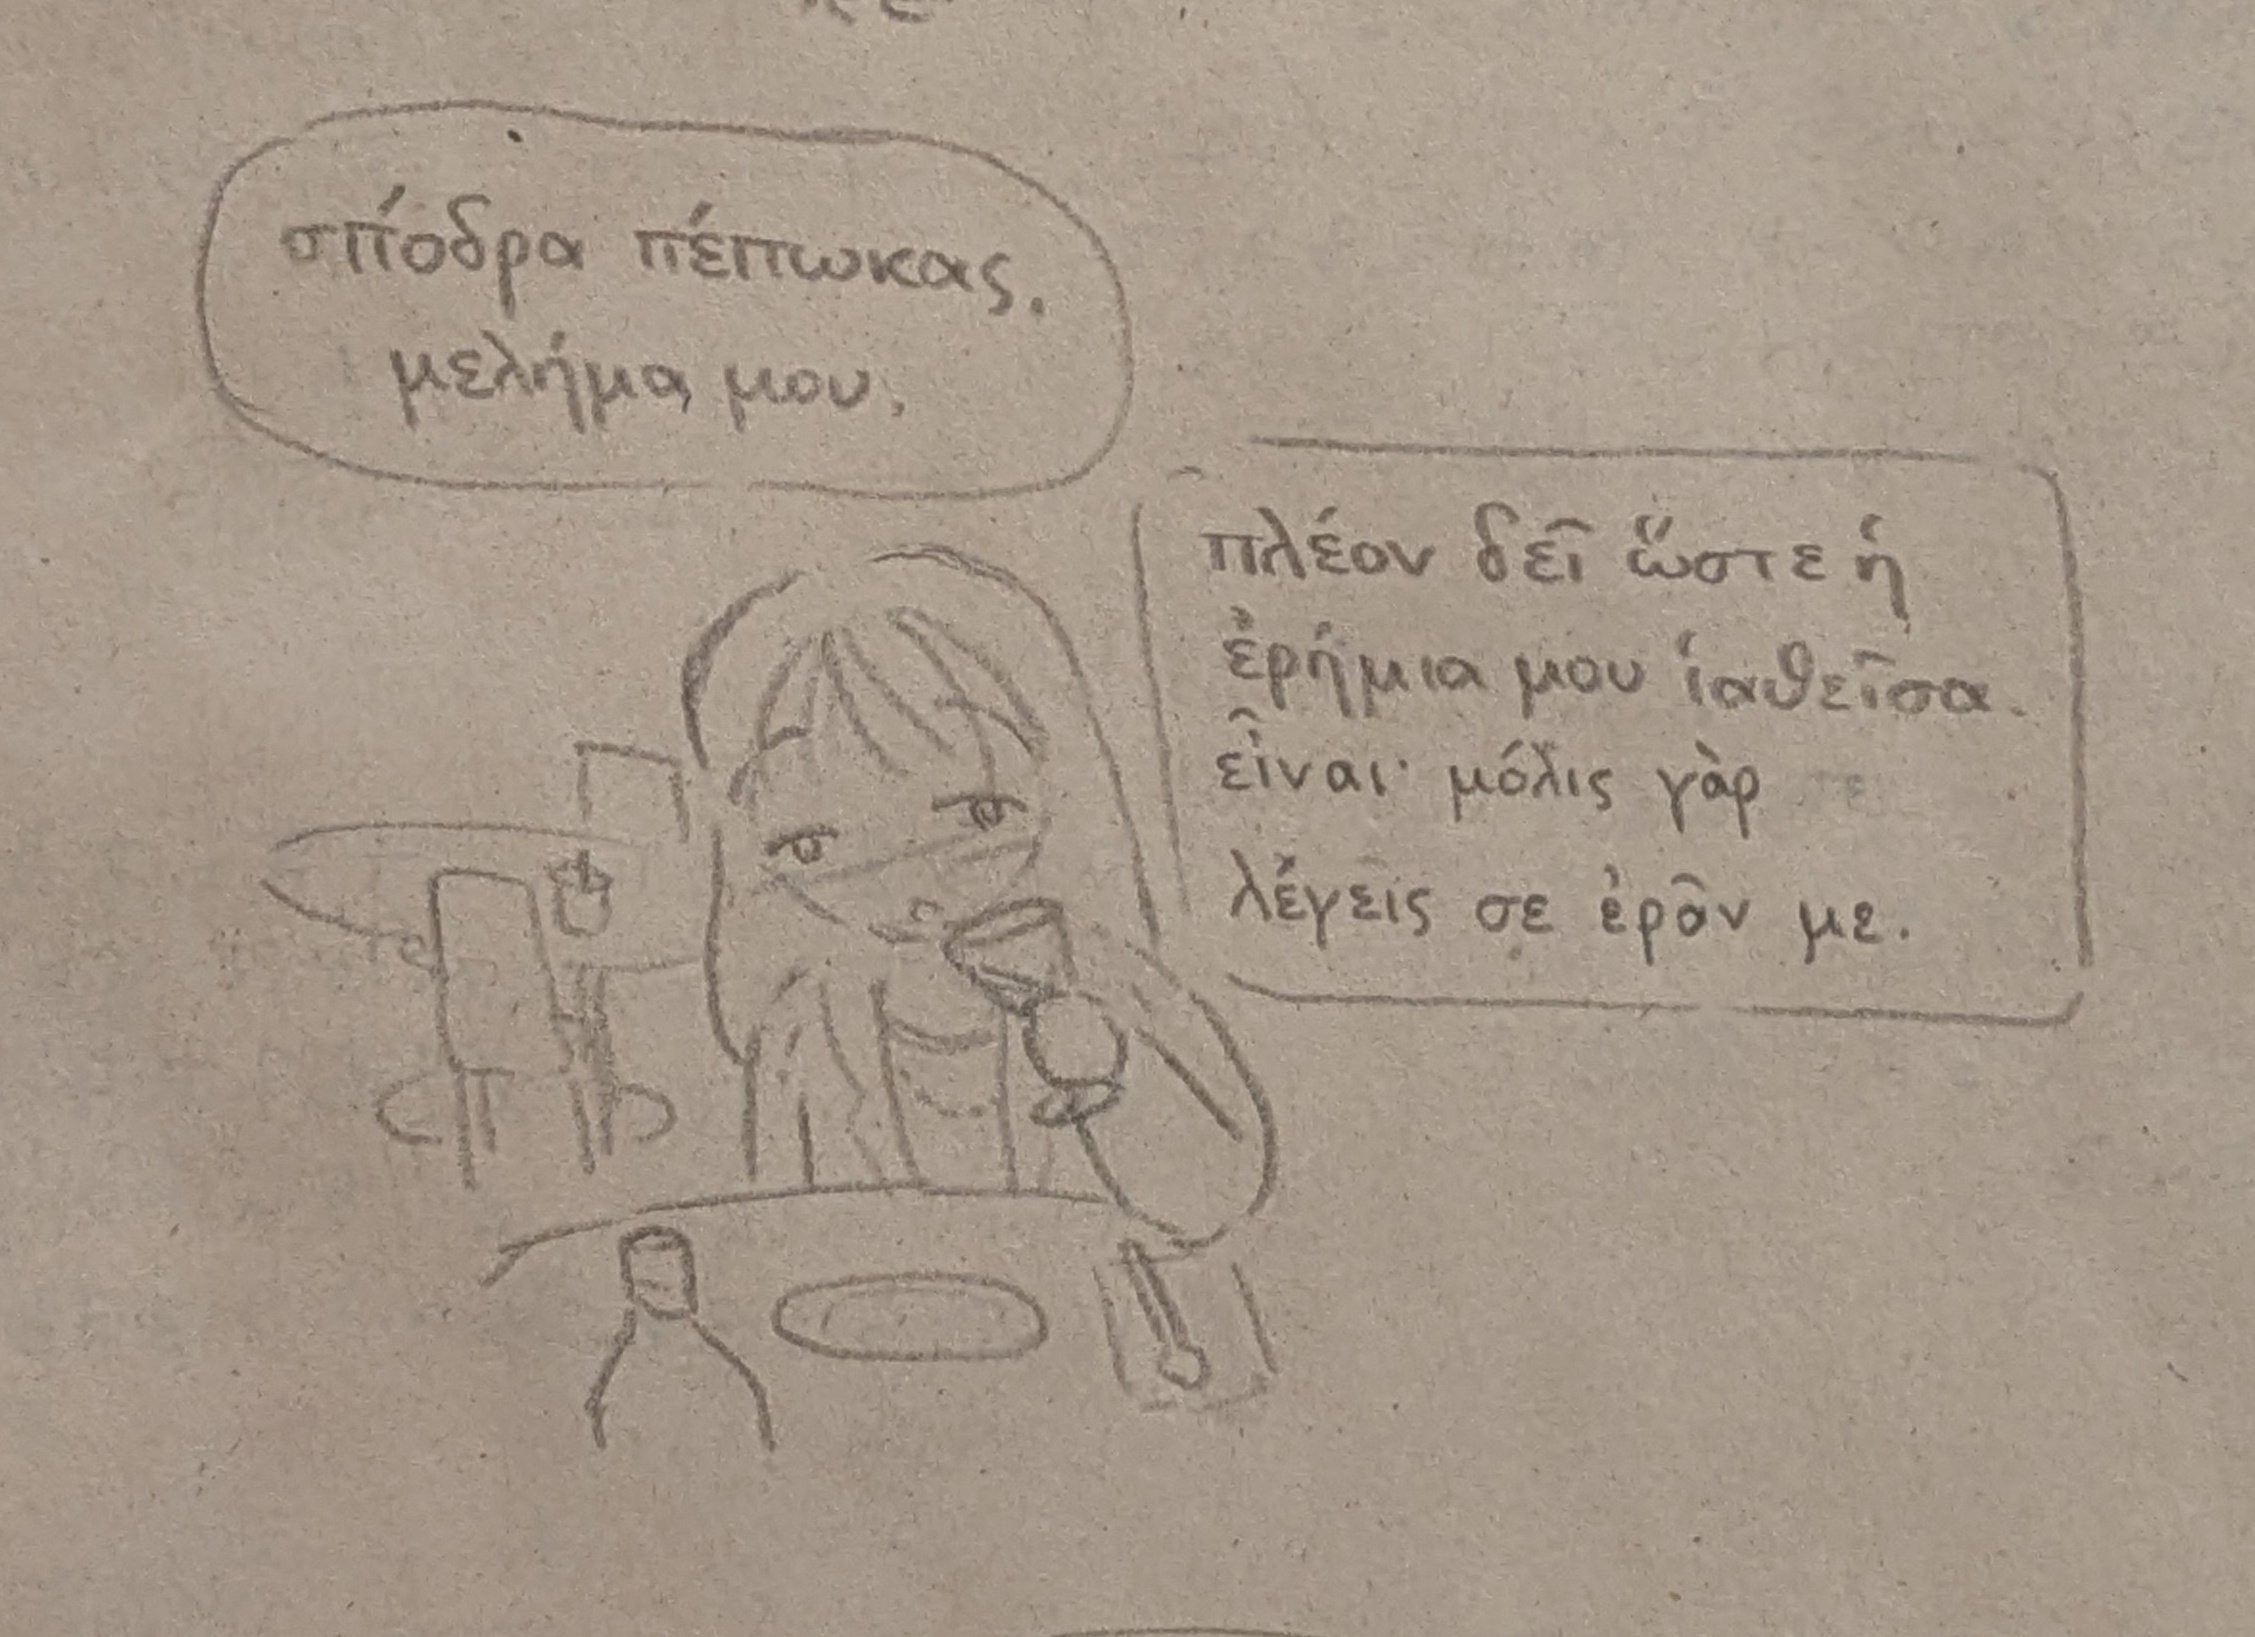 σπόδρα πέπωκας.
μελήμα μου.
πλέον δεῖ ὥστε ἡ
ἐρήμια μου ἰαθεῖσα
εἶναι· μόλις γὰρ
λέγεις σε ἐρᾶν με.